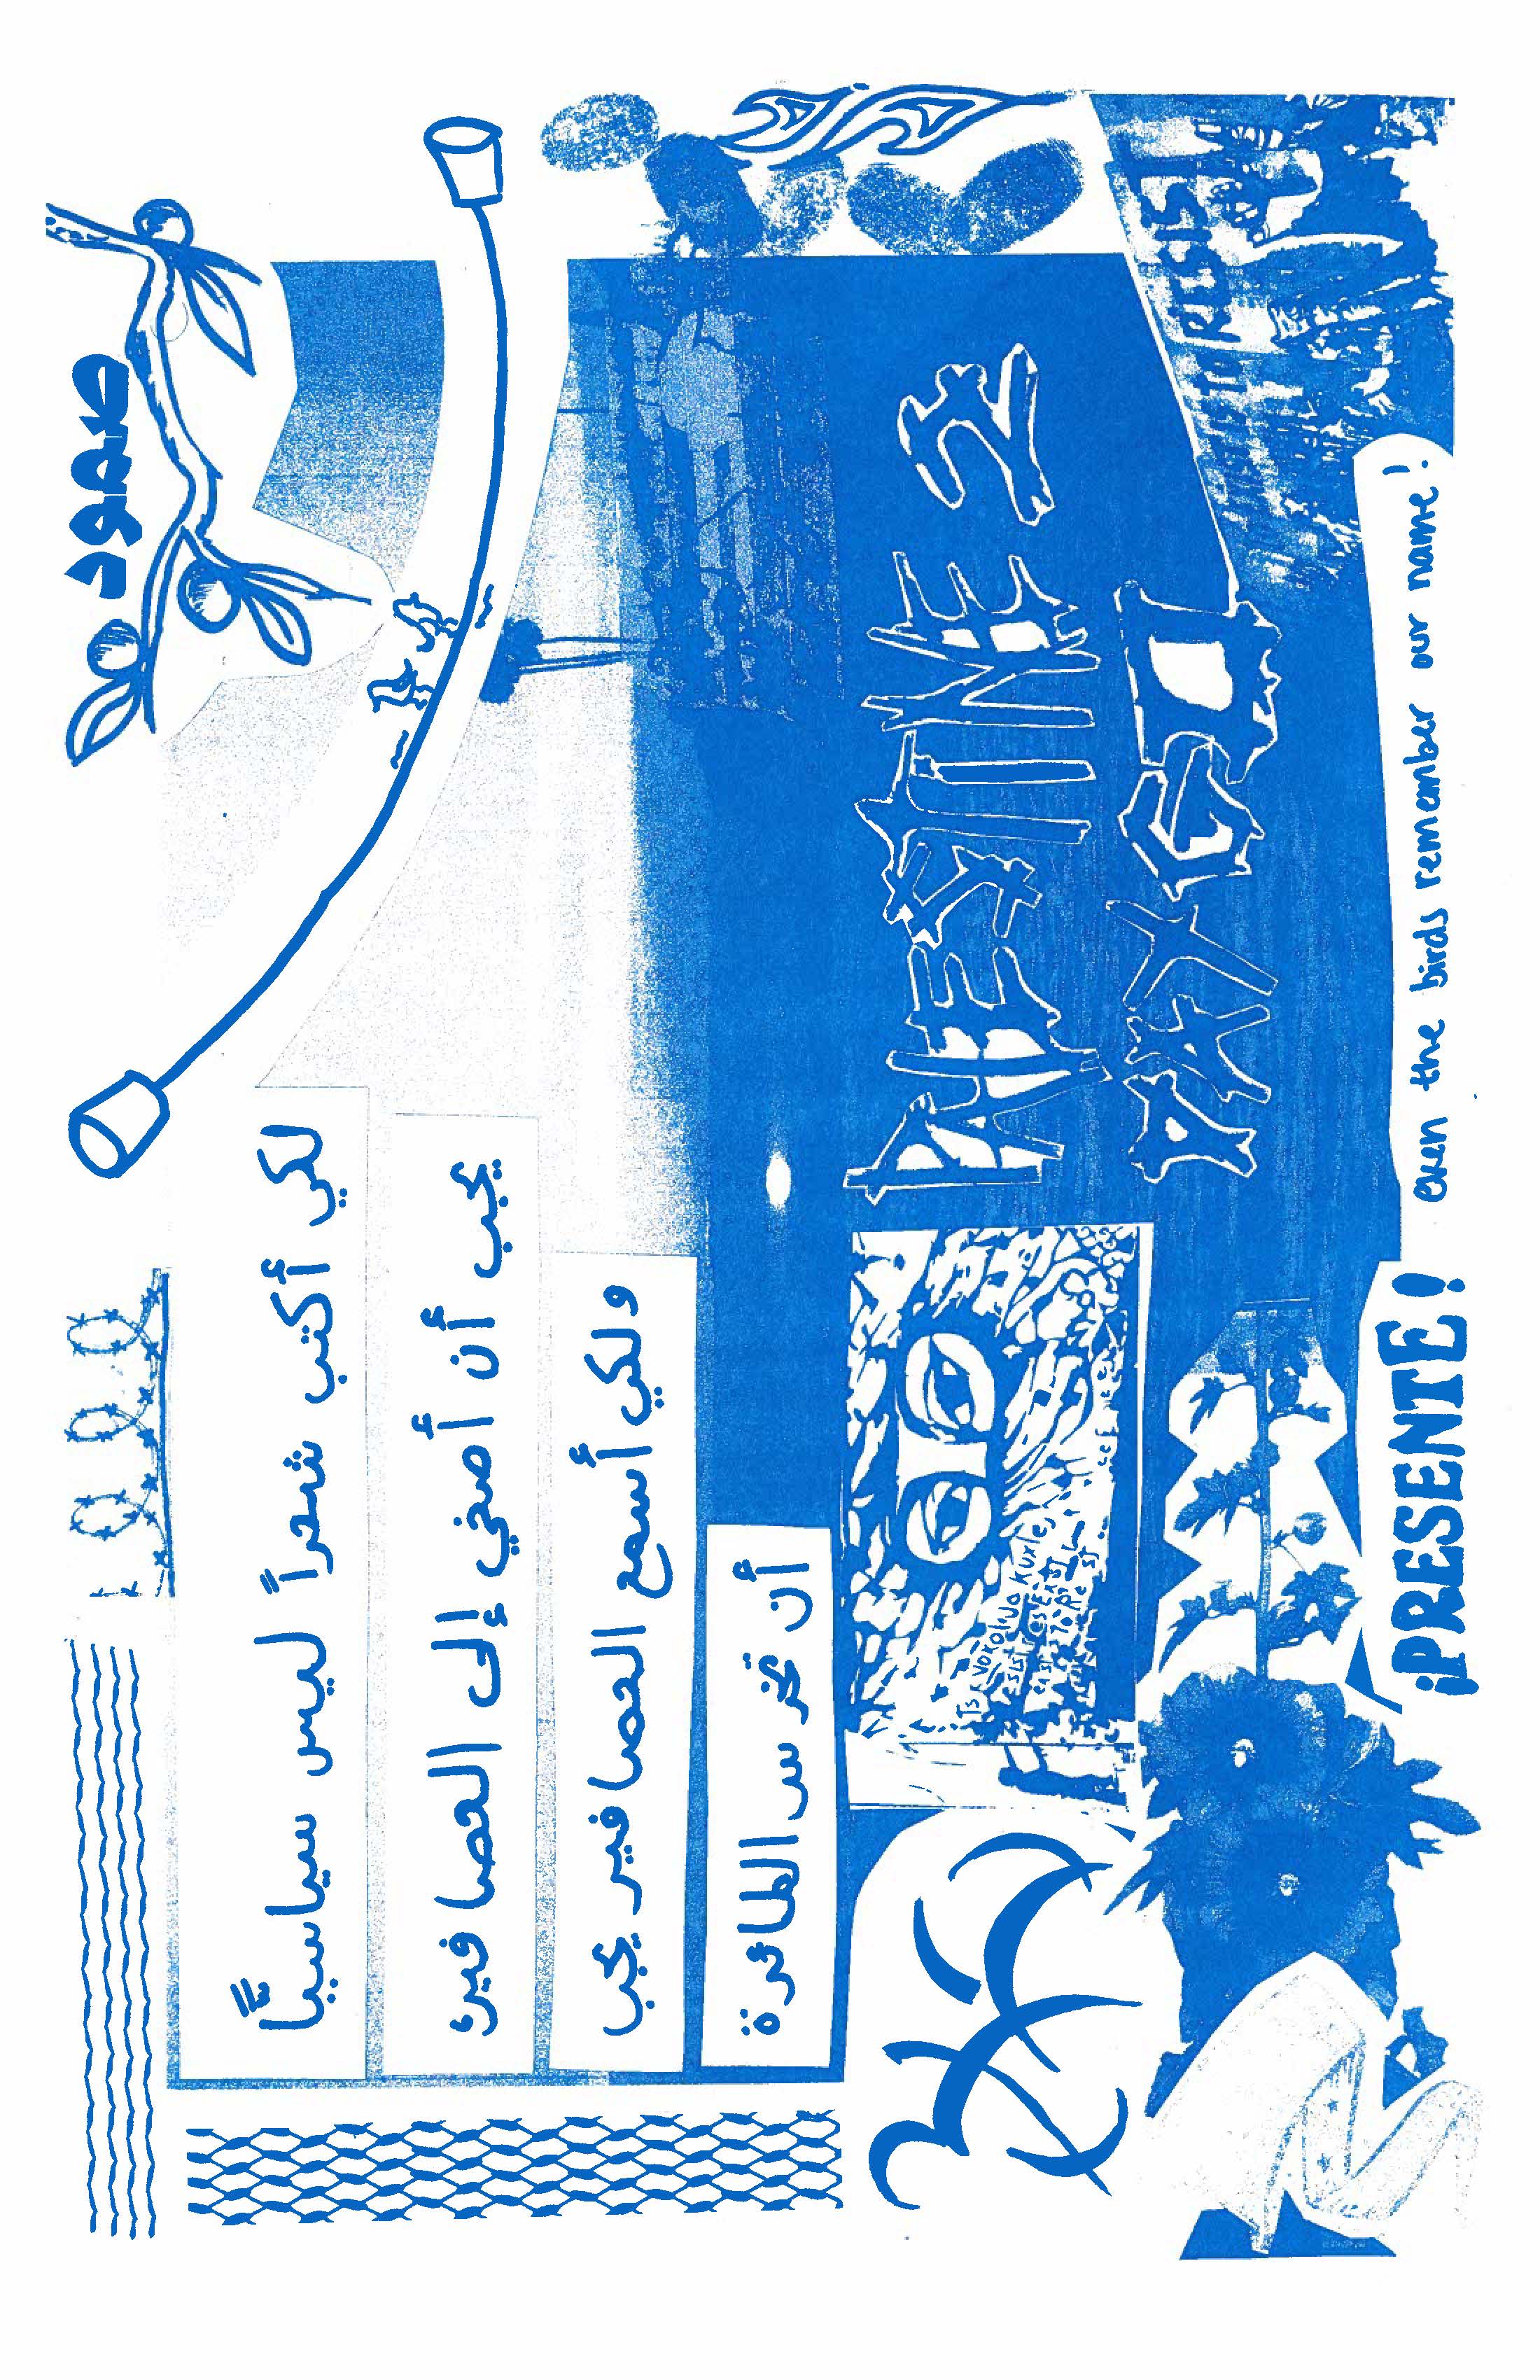 صمود
لكي أكتب شعراً ليس سياسياً
يجب أن أصغي إلى العصافير
ولكي أسمع العصافير يجب
أن تخرس الطائرة
PALESTINE 2
TO RESIST
¡PRESENTE!
even the birds remember our name!